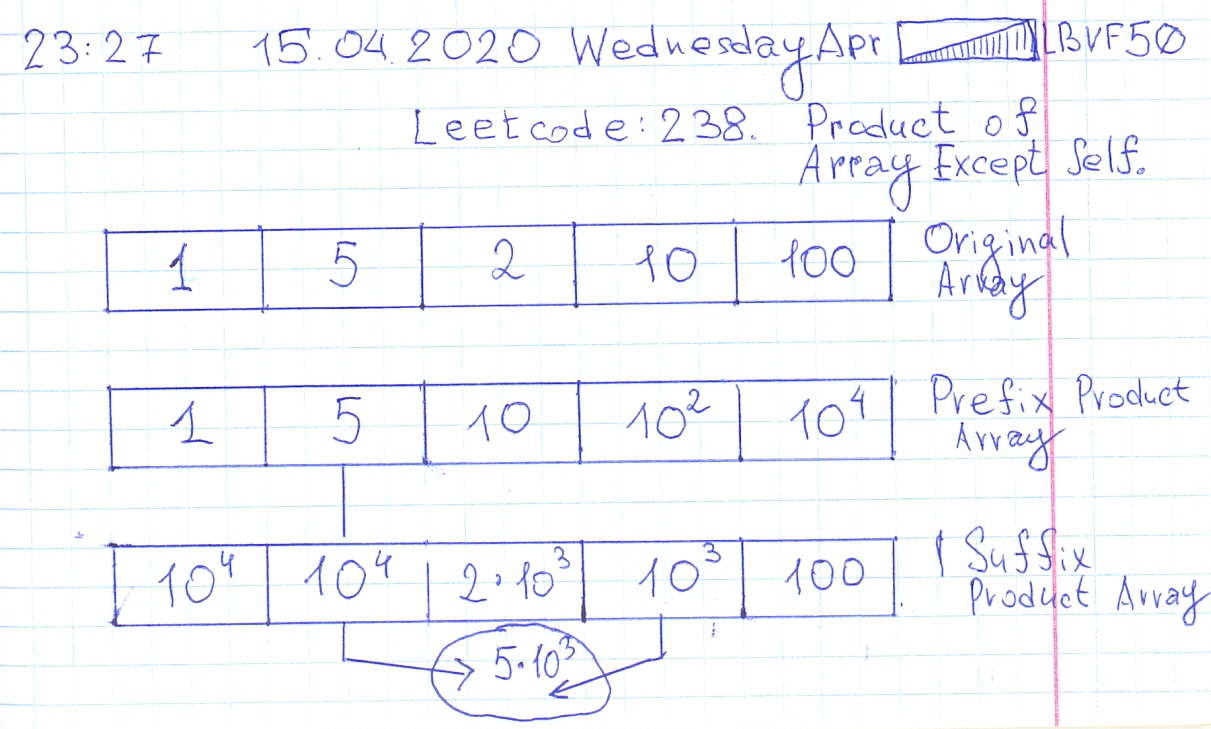 23:27 15.04.2020 Wednesday Apr LBVF50
Leetcode: 238. Product of
Array Except Self.
1 5 2 10 100 Original
Array
1 5 10 10² 10⁴ Prefix Product
Array
10⁴ 10⁴ 2·10³ 10³ 100 Suffix
Product Array
5·10³